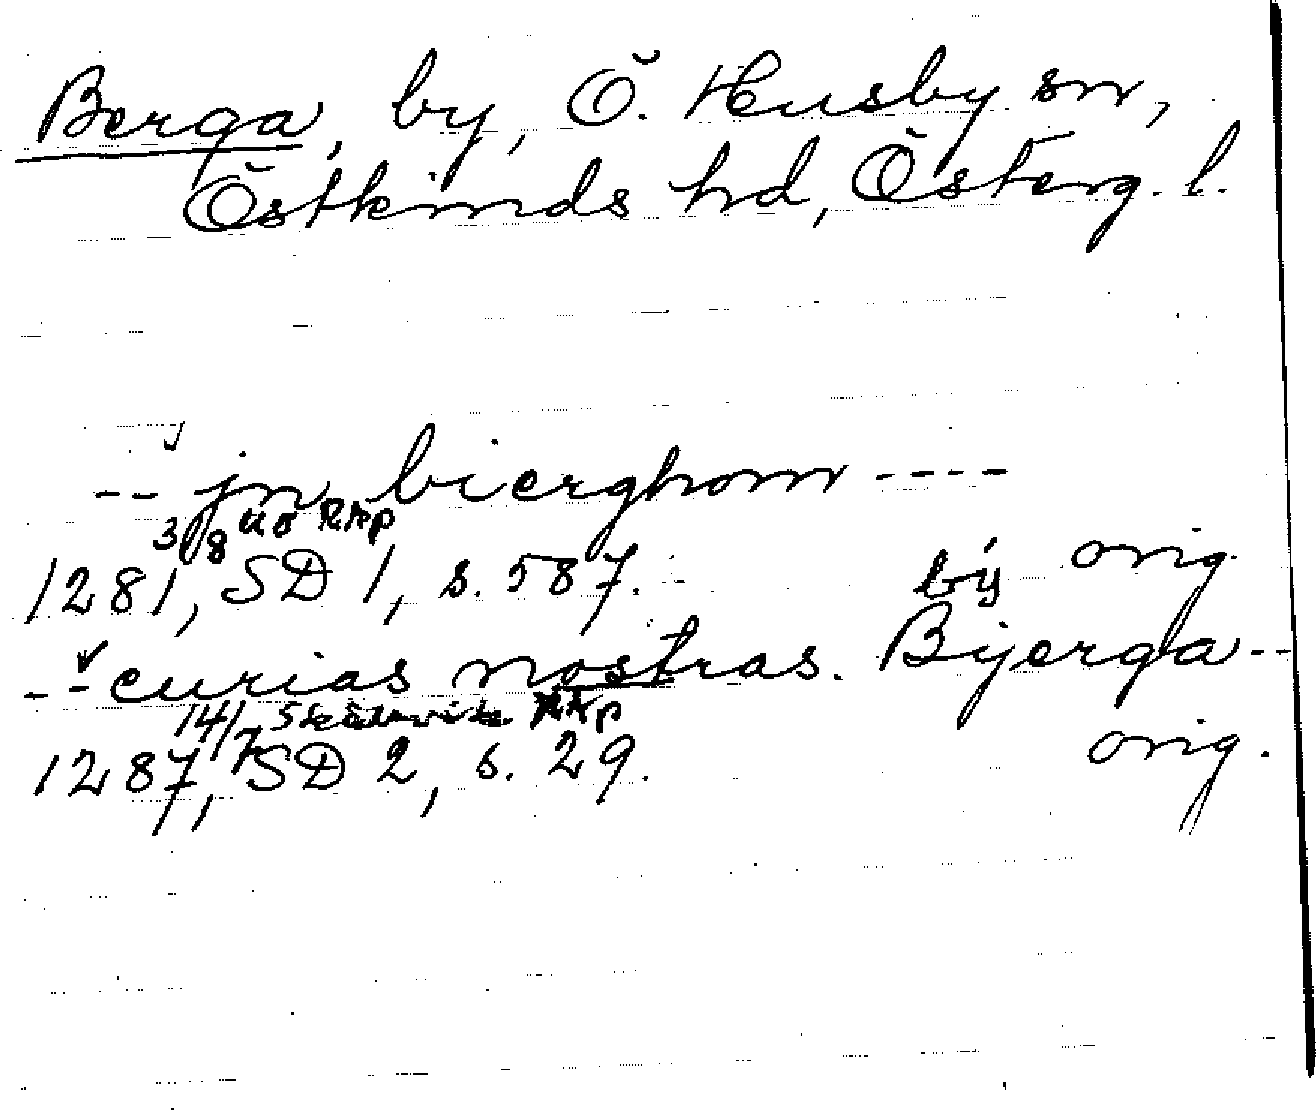 Berga, by, Ö. Husby sn,
Östkinds hd, Österg. l.
-- jn bierghom ----
30/8 uo RAp
1281, SD 1, s. 587. orig.
bÿ
-- curias nostras. Bÿerga --
14/7 RAp
1287, SD 2, s. 29. orig.